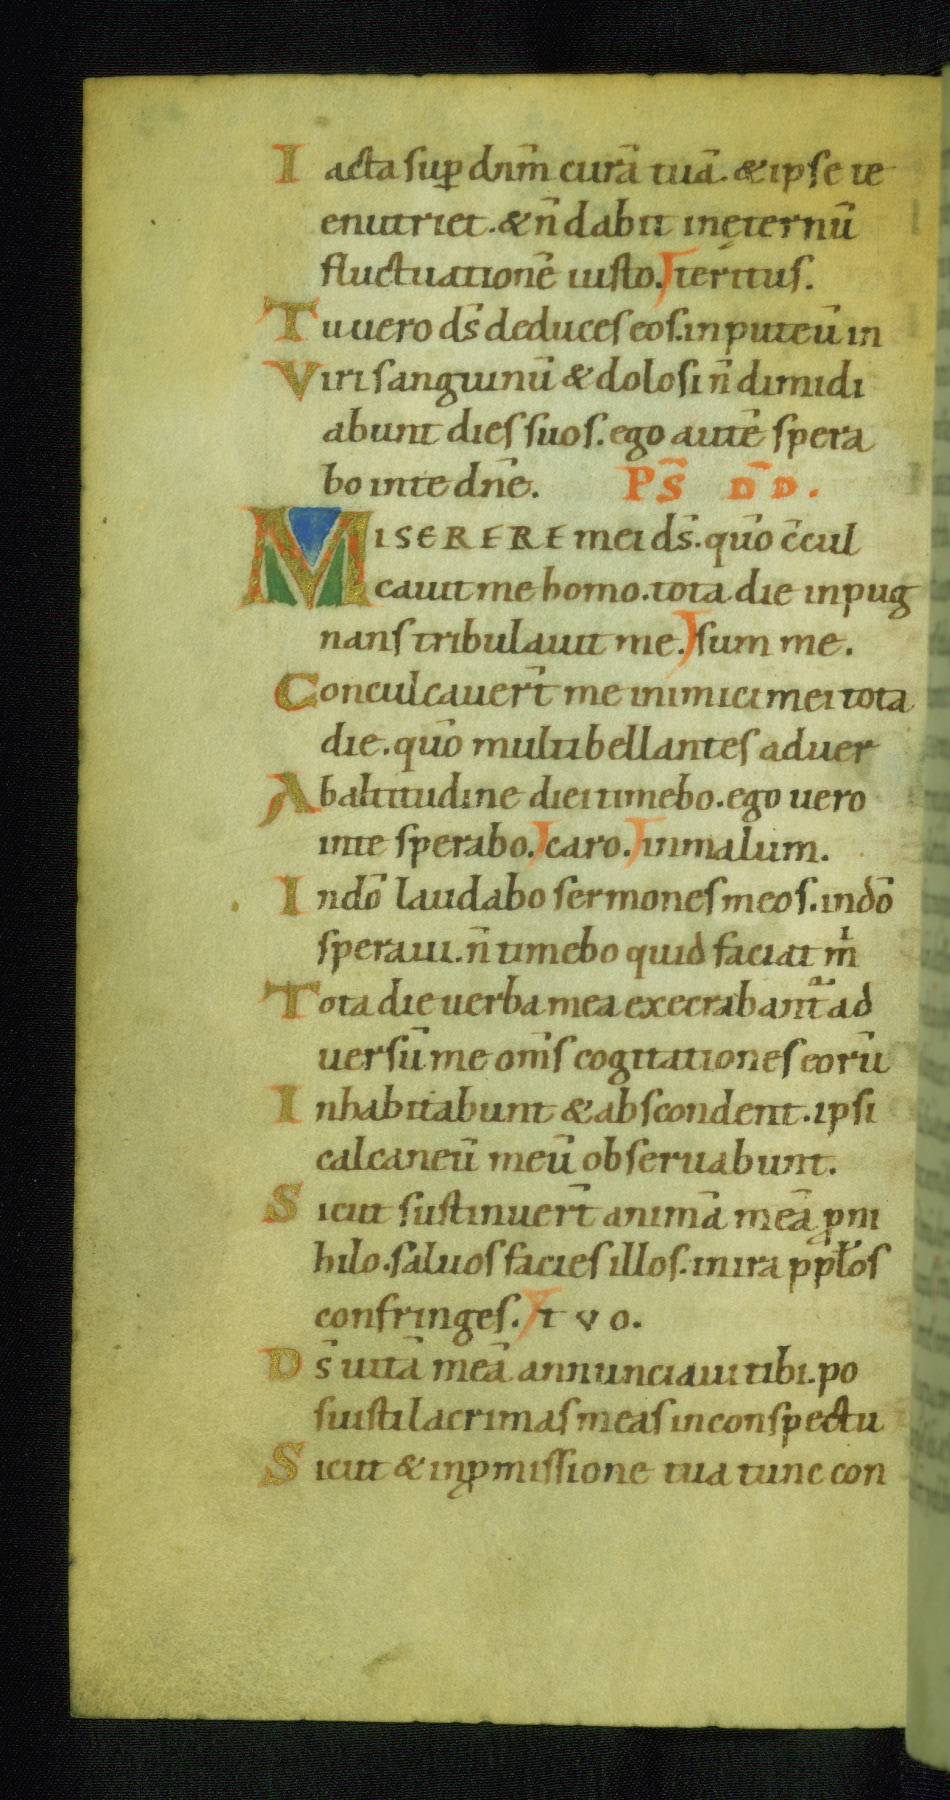 Iacta sup̱ dn̄m curā tuā. & ipse te
enutriet. & n̄ dabit in ęternū
fluctuationē iusto. teritus.
Tu uero ds̄ deduces eos. in puteū in
Viri sanguinū & dolosi n̄ dimidi
abunt dies suos. ego autē spera
bo in te dn̄e. PS̄ DD̄.
MISERERE mei ds̄. quō c̄cul
cauit me homo. tota die inpug
nans tribulauit me. sum me.
Conculcauer̄t me inimici mei tota
die. quō multi bellantes aduer
Ab altitudine diei timebo. ego uero
in te sperabo. caro. in malum.
In dō laudabo sermones meos. in dō
speraui. n̄ timebo quid faciat m̄ı
Tota die uerba mea execrabant̄ ad
uersū me om̄s cogitationes eorū
Inhabitabunt & abscondent. ipsi
calcaneū meū obseruabunt.
Sicut sustinuer̄t animā meā ꝓ ni
hilo. saluos facies illos. in ira pp̄los
confringes. tvo.
Ds̄ uitā meā annunciaui tibi. po
suisti lacrimas meas in conspectu
Sicut & in ꝓmissione tua tunc con